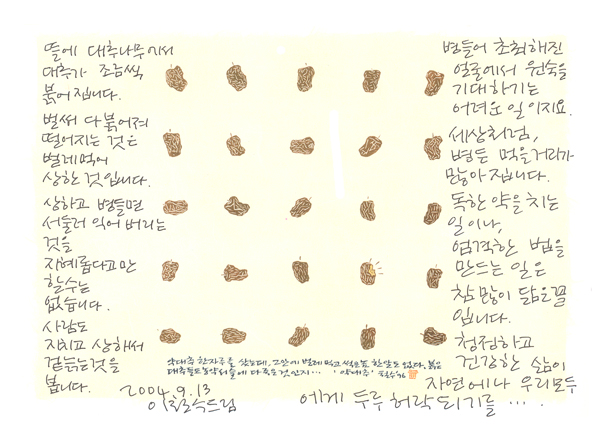 뜰에 대추나무에서
대추가 조금씩
붉어집니다.
벌써 다 붉어져
떨어지는 것은
벌레먹어
상한 것입니다.
상하고 병들면
서둘러 익어 버리는
것을
지혜롭다고만
할수는
없습니다.
사람도
지치고 상하서
겉늙는것을
봅니다.
병들어 초췌해진
얼굴에서 원숙을
기대하기는
어려운 일이지요.
세상처럼,
병든 먹을거리가
많아집니다.
독한 약을 치는
일이나,
엄격한 법을
만드는 일은
참 많이 닮은꼴
입니다.
청정하고
건강한 삶이
자연에나 우리모두
에게 두루 허락되기를 ....
약대추 한자루를 샀는데, 그 안에 벌레먹고 썩은 한알도 없다. 붉은
대추들도 농약서울에 다 죽은 것인지... '약대추'
2004.9.13
이철수드림